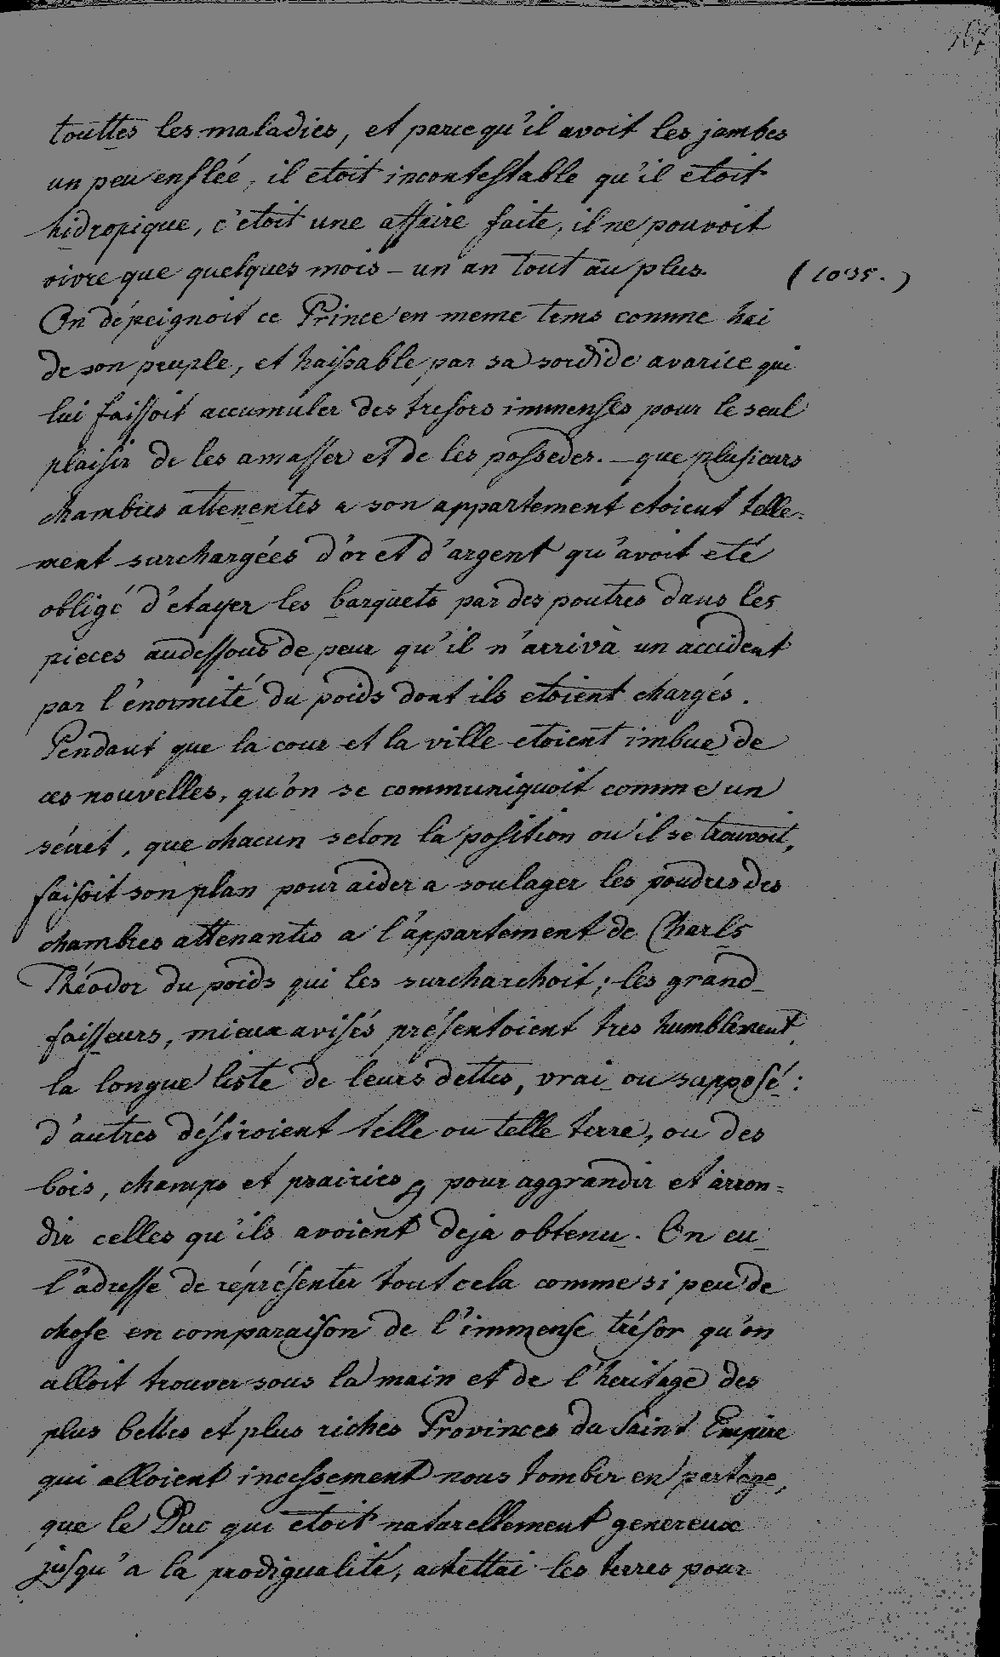 167
touttes les maladies, et parcequ'il avoit les jambes
un peu enflée, il etoit incontestable qu'il etoit
hidropique, c'étoit une affaire faite, il ne pouvoit
vivre que quelques mois – un an tout au plus.
(1035.)
On dépeignoit ce Prince en meme tems comme hai
de son peuple, et haissable par sa sordide avarice qui
lui faissoit accumuler des tresors immenses pour le seul
plaisir de les amasser et de les posseder. – que plusieurs
chambres attenentes a son appartement etoient telle-
ment surchargées d'or et d'argent qu'avoit eté
obligé d'etayer les barquets par des poutres dans les
pieces audessous de peur qu'il n'arrivà un accident
par l'énormité du poids dont ils etoient chargés.
Pendant que la cour et la ville etoient imbue de
ces nouvelles, qu'on se communiquoit comme un
sécret, que chacun selon la position ou il se trouvoit,
faisoit son plan pour aider a soulager les poudres des
chambres attenantes a l'appartement de Charls
Théodor du poids qui les surcharchoit; les grand
faisseurs, mieux avisés présentoient tres humblement
la longue liste de leurs dettes, vrai ou supposé:
d'autres désiroient telle ou telle terre, ou des
bois, champs et prairies pour aggrandir et arron=
dir celles qu'ils avoient deja obtenu. On eu
l'adresse de réprésenter tout cela comme si peu de
chose en comparaison de l'immense trésor qu'on
alloit trouver sous la main et de l'heritage des
plus belles et plus riches Provinces du Saint Empire
qui alloient incessement nous tomber en partage,
que le Duc qui etoit naturellement genereux
jusqu'a la prodigualité, achettai les terres pour